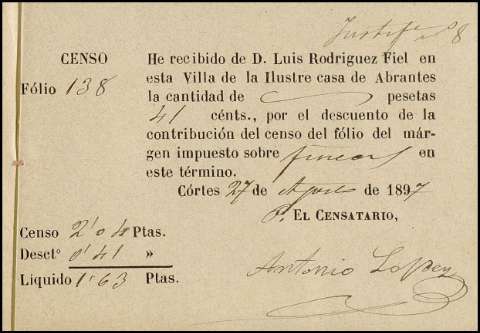 CENSO
Fólio 138
He recibido de D. Luis Rodriguez Fiel en
esta Villa de la Ilustre casa de Abrantes
la cantidad de pesetas
41 cénts., por el descuento de la
contribución del censo del fólio del már-
gen impuesto sobre fincas en
este término.
Córtes 27 de Agosto de 1897
P. EL CENSATARIO,
Censo 2'04 Ptas.
Desct° 0'41 »
Líquido 1'63 Ptas.
Antonio Lopez